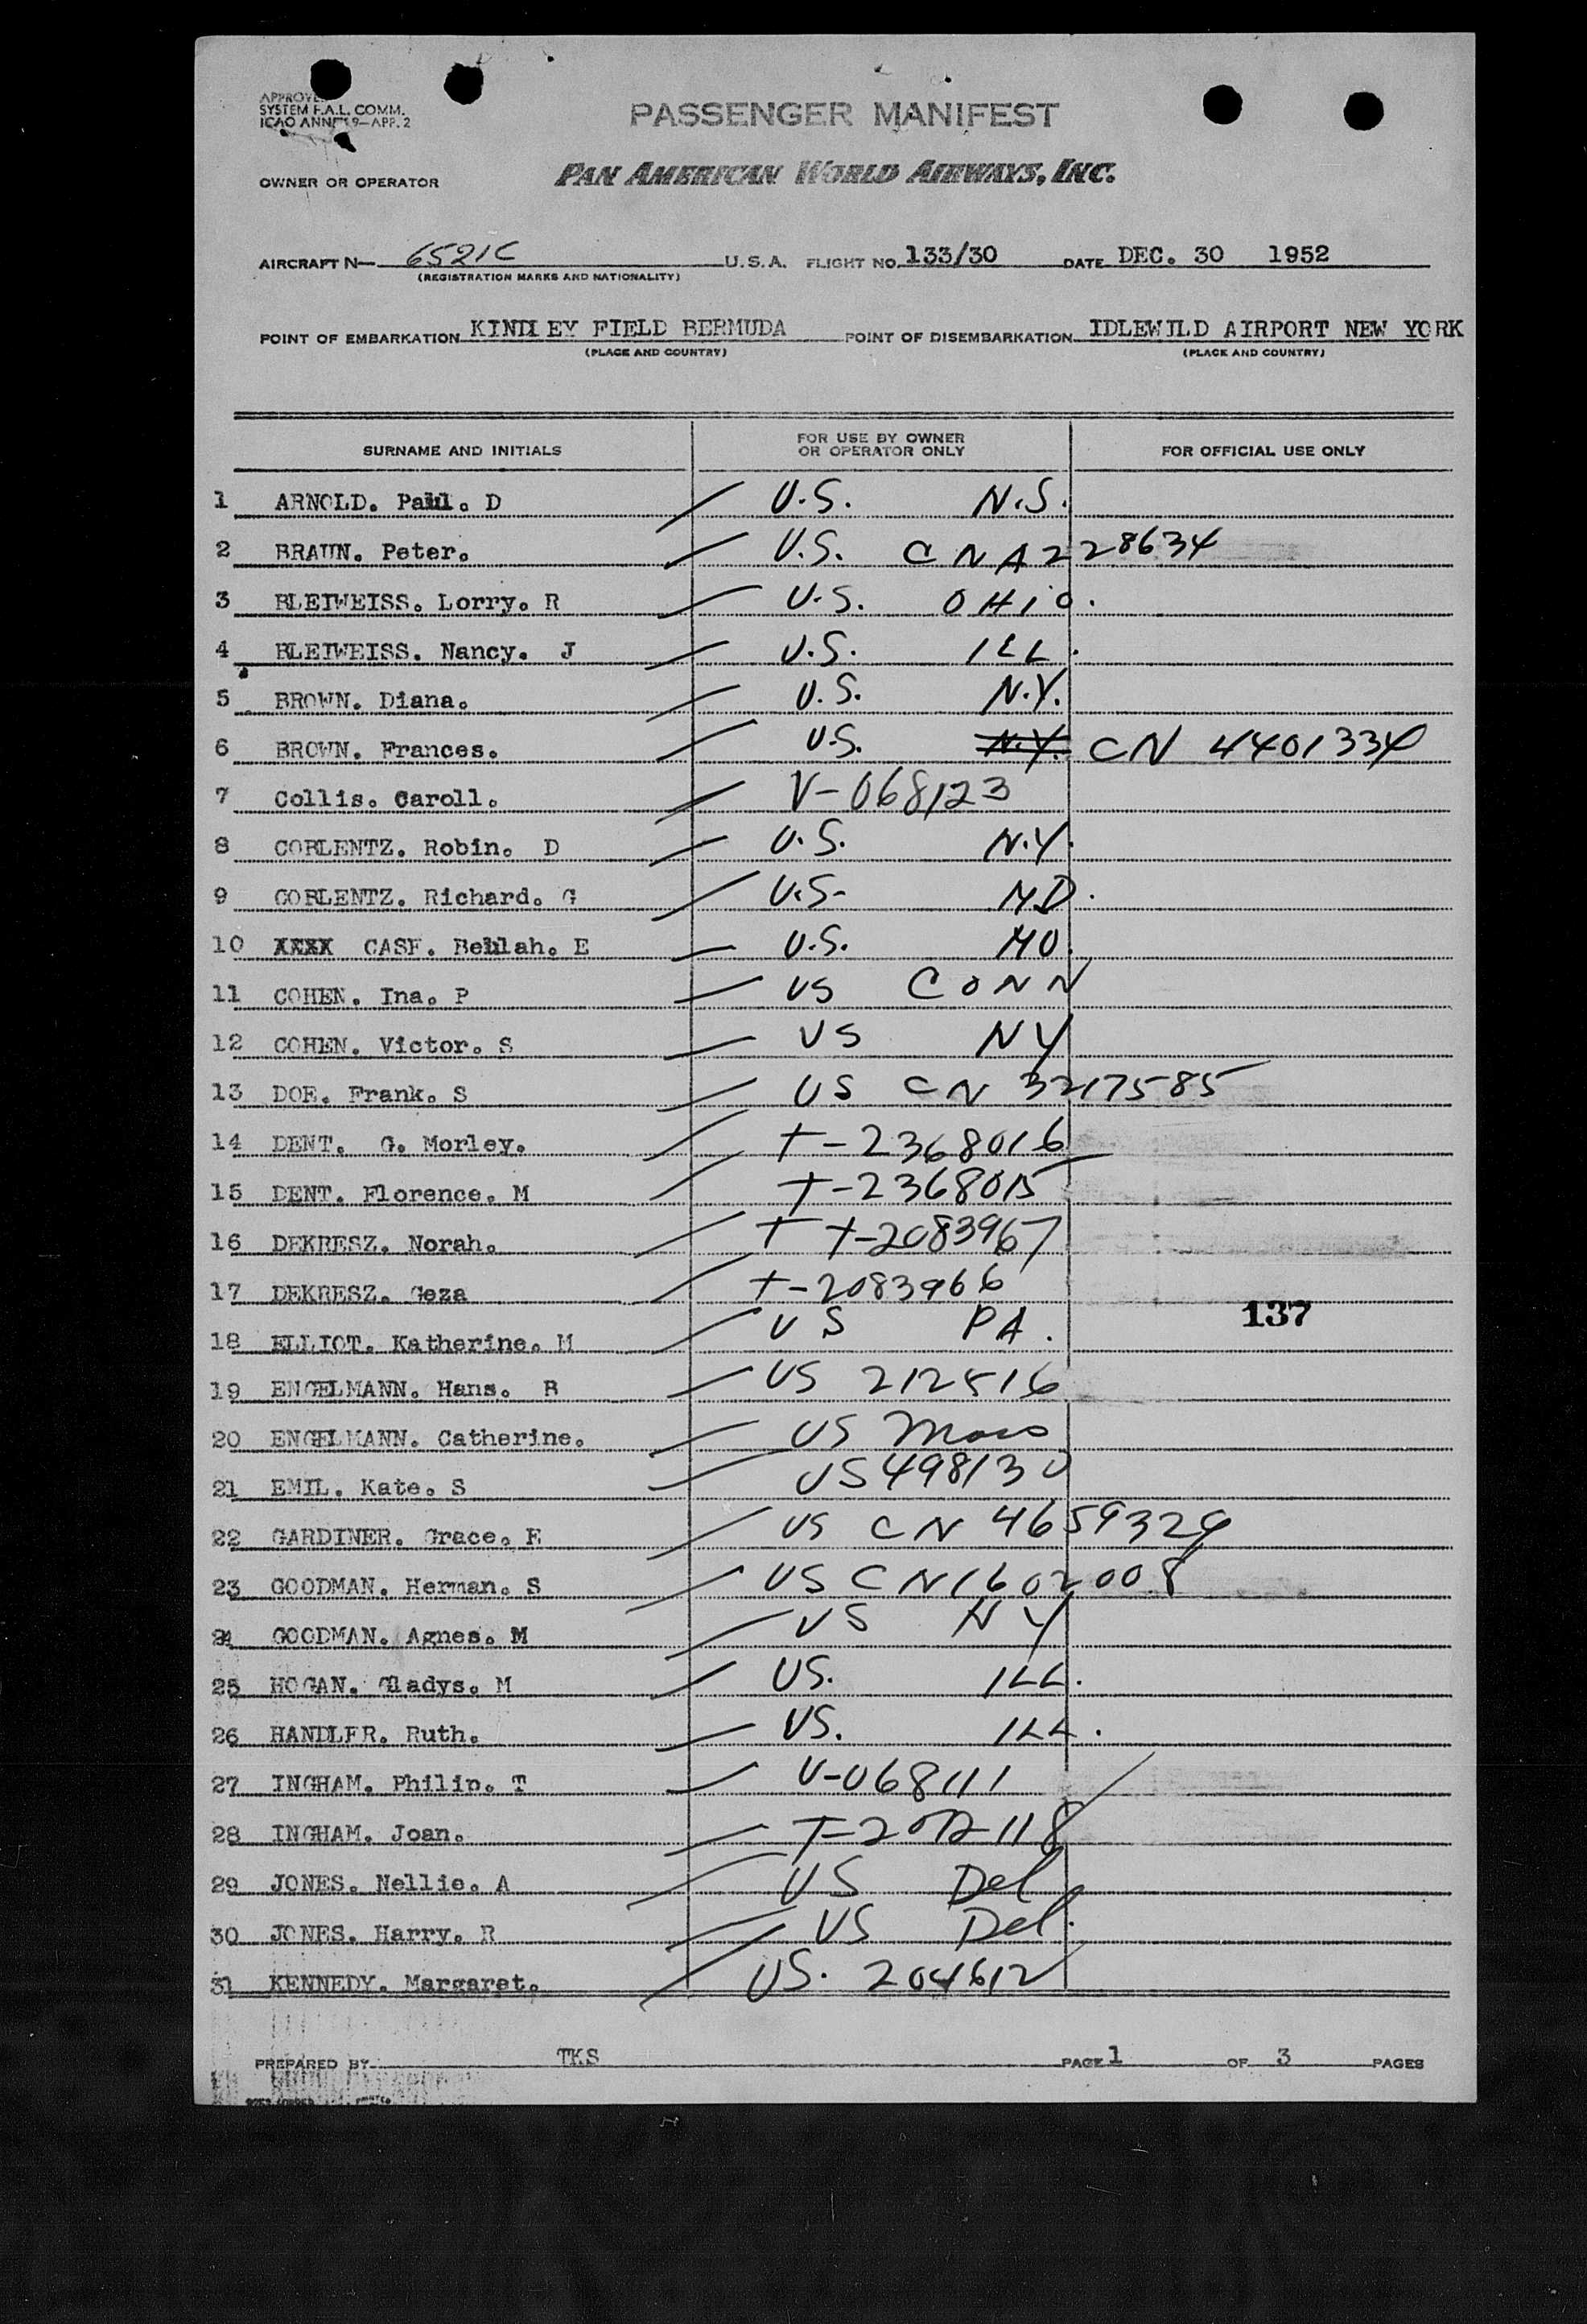 APPROVE
SYSTEM F.A.L. COMM.
ICAO ANNEX 9—APP. 2
PASSENGER MANIFEST
OWNER OR OPERATOR PAN AMERICAN WORLD AIRWAYS, INC.
AIRCRAFT N— 6521C U.S.A. FLIGHT NO. 133/30 DATE DEC. 30 1952
(REGISTRATION MARKS AND NATIONALITY)
POINT OF EMBARKATION KINDLEY FIELD BERMUDA POINT OF DISEMBARKATION IDLEWILD AIRPORT NEW YORK
(PLACE AND COUNTRY) (PLACE AND COUNTRY)
SURNAME AND INITIALS FOR USE BY OWNER OR OPERATOR ONLY FOR OFFICIAL USE ONLY
1 ARNOLD. Paul. D U.S. N.S.
2 BRAUN. Peter. U.S. CN A228634
3 BLEIWEISS. Lorry. R U.S. OHIO.
4 BLEIWEISS. Nancy. J U.S. ILL.
5 BROWN. Diana. U.S. N.Y.
6 BROWN. Frances. U.S. N.Y. CN 4401334
7 Collis. Caroll. V-068123
8 COBLENTZ. Robin. D U.S. N.Y.
9 COBLENTZ. Richard. G U.S. MD.
10 XXXX CASE. Beulah. E U.S. MO.
11 COHEN. Ina. P US CONN
12 COHEN. Victor. S US NY
13 DOE. Frank. S US CN 3217585
14 DENT. G. Morley. T-2368016
15 DENT. Florence. M T-2368015
16 DEKRESZ. Norah. T T-2083967
17 DEKRESZ. Geza T-2083966
137
18 ELLIOT. Katherine. M US PA.
19 ENGELMANN. Hans. B US 212516
20 ENGELMANN. Catherine. US Mass
21 EMIL. Kate. S US 498130
22 GARDINER. Grace. E US CN 4659329
23 GOODMAN. Herman. S US CN 1602008
24 GOODMAN. Agnes. M US NY
25 HOGAN. Gladys. M US. ILL.
26 HANDLER. Ruth. US. ILL.
27 INGHAM. Philip. T V-068111
28 INGHAM. Joan. T-2072118
29 JONES. Nellie. A US Del
30 JONES. Harry. R US Del.
31 KENNEDY. Margaret. US. 204612
PREPARED BY TKS PAGE 1 OF 3 PAGES